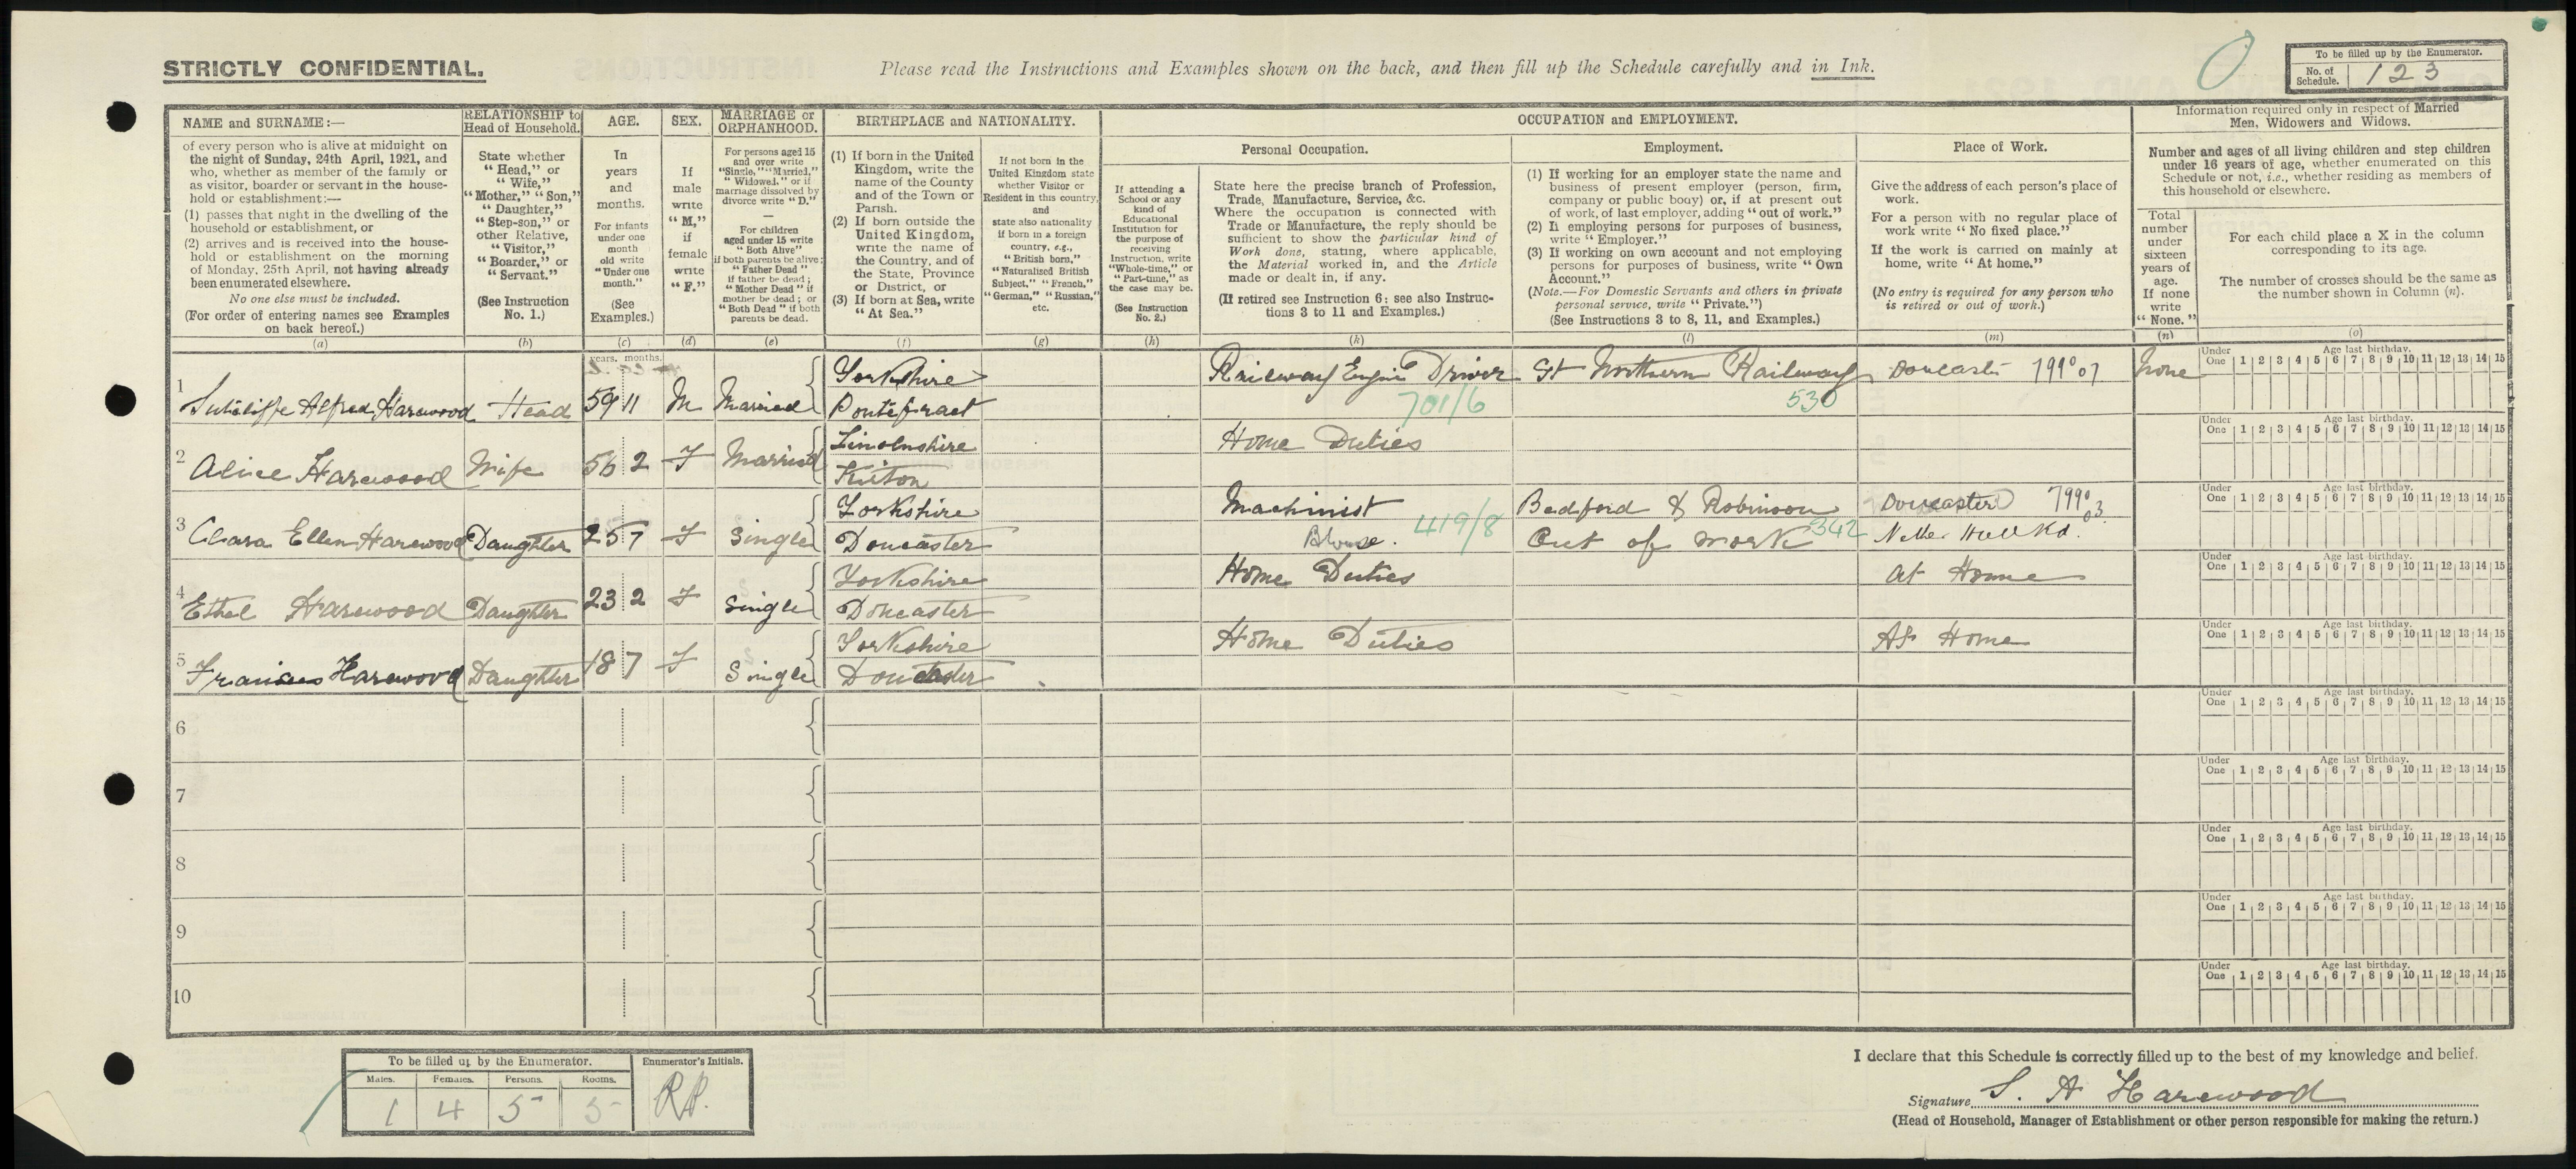 STRICTLY CONFIDENTIAL.
Please read the Instructions and Examples shown on the back, and then fill up the Schedule carefully and in Ink.
To be filled up by the Enumerator.
No. of Schedule. 123
NAME and SURNAME:—
of every person who is alive at midnight on
the night of Sunday, 24th April, 1921, and
who, whether as member of the family or
as visitor, boarder or servant in the house-
hold or establishment:—
(1) passes that night in the dwelling of the
household or establishment, or
(2) arrives and is received into the house-
hold or establishment on the morning
of Monday, 25th April, not having already
been enumerated elsewhere.
No one else must be included.
(For order of entering names see Examples
on back hereof.)
(a)
RELATIONSHIP to
Head of Household.
State whether
"Head," or
"Wife,"
"Mother," "Son,"
"Daughter,"
"Step-son," or
other Relative,
"Visitor,"
"Boarder," or
"Servant."
(See Instruction
No. 1.)
(b)
AGE.
In
years
and
months.
For infants
under one
month
old write
"Under one
month."
(See
Examples.)
(c)
SEX.
If
male
write
"M,"
if
female
write
"F."
(d)
MARRIAGE or
ORPHANHOOD.
For persons aged 15
and over write
"Single," "Married,"
"Widowed," or if
marriage dissolved by
divorce write "D."
—
For children
aged under 15 write
"Both Alive"
if both parents be alive;
"Father Dead"
if father be dead;
"Mother Dead" if
mother be dead; or
"Both Dead" if both
parents be dead.
(e)
BIRTHPLACE and NATIONALITY.
(1) If born in the United
Kingdom, write the
name of the County
and of the Town or
Parish.
(2) If born outside the
United Kingdom,
write the name of
the Country, and of
the State, Province
or District, or
(3) If born at Sea, write
"At Sea."
(f)
If not born in the
United Kingdom state
whether Visitor or
Resident in this country,
and
state also nationality
if born in a foreign
country, e.g.,
"British born,"
"Naturalised British
Subject," "French,"
"German," "Russian,"
etc.
(g)
OCCUPATION and EMPLOYMENT.
If attending a
School or any
kind of
Educational
Institution for
the purpose of
receiving
Instruction, write
"Whole-time," or
"Part-time," as
the case may be.
(See Instruction
No. 2.)
(h)
Personal Occupation.
State here the precise branch of Profession,
Trade, Manufacture, Service, &c.
Where the occupation is connected with
Trade or Manufacture, the reply should be
sufficient to show the particular kind of
Work done, stating, where applicable,
the Material worked in, and the Article
made or dealt in, if any.
(If retired see Instruction 6: see also Instruc-
tions 3 to 11 and Examples.)
(k)
Employment.
(1) If working for an employer state the name and
business of present employer (person, firm,
company or public body) or, if at present out
of work, of last employer, adding "out of work."
(2) If employing persons for purposes of business,
write "Employer."
(3) If working on own account and not employing
persons for purposes of business, write "Own
Account."
(Note.—For Domestic Servants and others in private
personal service, write "Private.")
(See Instructions 3 to 8, 11, and Examples.)
(l)
Place of Work.
Give the address of each person's place of
work.
For a person with no regular place of
work write "No fixed place."
If the work is carried on mainly at
home, write "At home."
(No entry is required for any person who
is retired or out of work.)
(m)
Information required only in respect of Married
Men, Widowers and Widows.
Number and ages of all living children and step children
under 16 years of age, whether enumerated on this
Schedule or not, i.e., whether residing as members of
this household or elsewhere.
Total
number
under
sixteen
years of
age.
If none
write
"None."
(n)
For each child place a X in the column
corresponding to its age.
The number of crosses should be the same as
the number shown in Column (n).
(o)
years. months.
1 Sutcliffe Alfred Harewood Head 59 11 M Married Yorkshire Pontefract Railway Engine Driver 701/6 Gt Northern Railway 530 Doncaster None
Under One Age last birthday. 1 2 3 4 5 6 7 8 9 10 11 12 13 14 15
2 Alice Harewood Wife 56 2 F Married Lincolnshire Home Duties
Under One Age last birthday. 1 2 3 4 5 6 7 8 9 10 11 12 13 14 15
3 Clara Ellen Harewood Daughter 25 7 F Single Yorkshire Doncaster Machinist Blouse. 419/8 Bedford & Robinson Out of work 342 Doncaster
Under One Age last birthday. 1 2 3 4 5 6 7 8 9 10 11 12 13 14 15
4 Ethel Harewood Daughter 23 2 F Single Yorkshire Doncaster Home Duties At Home
Under One Age last birthday. 1 2 3 4 5 6 7 8 9 10 11 12 13 14 15
5 Frances Harewood Daughter 18 7 F Single Yorkshire Doncaster Home Duties At Home
Under One Age last birthday. 1 2 3 4 5 6 7 8 9 10 11 12 13 14 15
6
Under One Age last birthday. 1 2 3 4 5 6 7 8 9 10 11 12 13 14 15
7
Under One Age last birthday. 1 2 3 4 5 6 7 8 9 10 11 12 13 14 15
8
Under One Age last birthday. 1 2 3 4 5 6 7 8 9 10 11 12 13 14 15
9
Under One Age last birthday. 1 2 3 4 5 6 7 8 9 10 11 12 13 14 15
10
Under One Age last birthday. 1 2 3 4 5 6 7 8 9 10 11 12 13 14 15
To be filled up by the Enumerator.
Enumerator's Initials.
Males. Females. Persons. Rooms.
1 4 5 5 RP.
I declare that this Schedule is correctly filled up to the best of my knowledge and belief.
Signature S. A Harewood
(Head of Household, Manager of Establishment or other person responsible for making the return.)